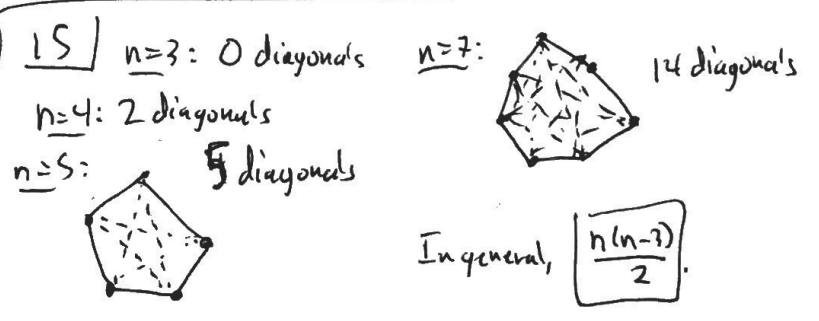 15 n=3: 0 diagonals
n=4: 2 diagonals
n=5: 5 diagonals
n=7: 14 diagonals
In general, n(n-3)/2.